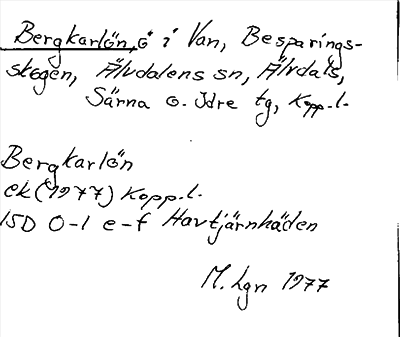 Bergkarlön, ö i Van, Besparings-
skogen, Älvdalens sn, Älvdals,
Särna o. Idre tg, Kopp. l.
Bergkarlön
ek (1977) Kopp. l.
15D 0-1 e-f Havtjärnhäden
M. Lgn 1977